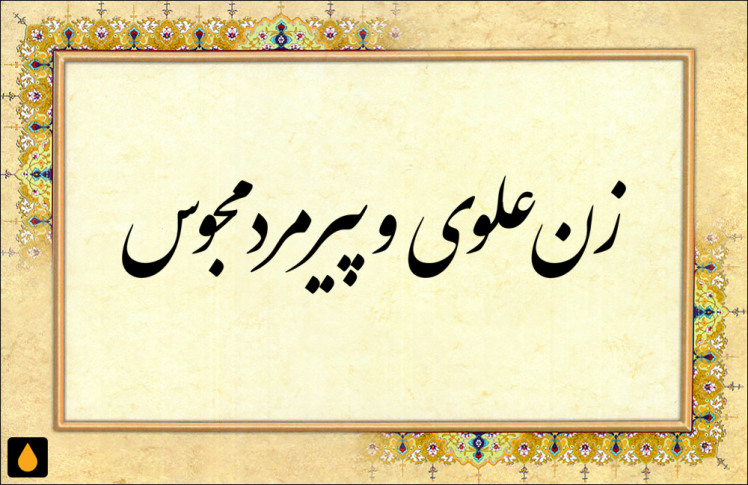 زن علوی و پیرمرد مجوس